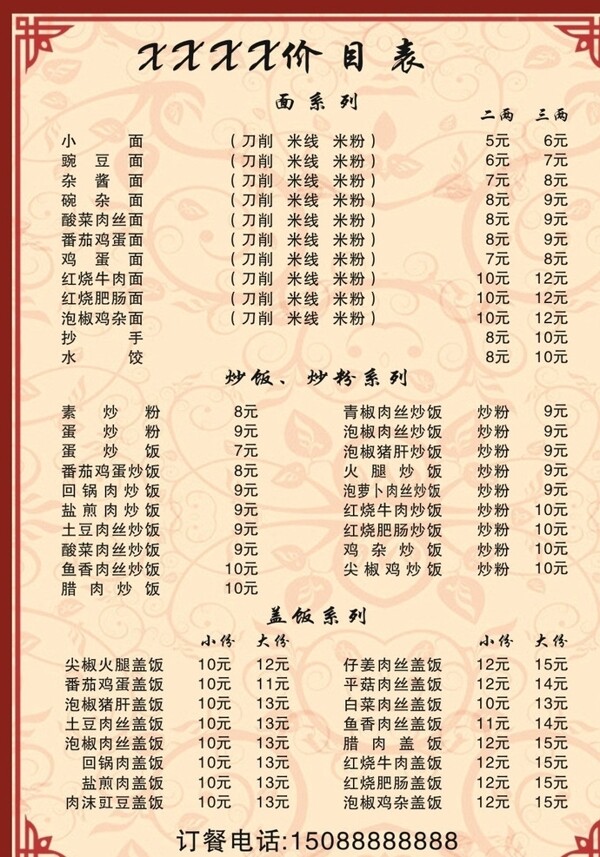 XXXX价目表
面系列
二两 三两
小面 (刀削 米线 米粉) 5元 6元
豌豆面 (刀削 米线 米粉) 6元 7元
杂酱面 (刀削 米线 米粉) 7元 8元
碗杂面 (刀削 米线 米粉) 8元 9元
酸菜肉丝面 (刀削 米线 米粉) 8元 9元
番茄鸡蛋面 (刀削 米线 米粉) 8元 9元
鸡蛋面 (刀削 米线 米粉) 7元 8元
红烧牛肉面 (刀削 米线 米粉) 10元 12元
红烧肥肠面 (刀削 米线 米粉) 10元 12元
泡椒鸡杂面 (刀削 米线 米粉) 10元 12元
抄手 8元 10元
水饺 8元 10元
炒饭、炒粉系列
素炒粉 8元 青椒肉丝炒饭 炒粉 9元
蛋炒粉 9元 泡椒肉丝炒饭 炒粉 9元
蛋炒饭 7元 泡椒猪肝炒饭 炒粉 9元
番茄鸡蛋炒饭 8元 火腿炒饭 炒粉 9元
回锅肉炒饭 9元 泡萝卜肉丝炒饭 炒粉 9元
盐煎肉炒饭 9元 红烧牛肉炒饭 炒粉 10元
土豆肉丝炒饭 9元 红烧肥肠炒饭 炒粉 10元
酸菜肉丝炒饭 9元 鸡杂炒饭 炒粉 10元
鱼香肉丝炒饭 10元 尖椒鸡炒饭 炒粉 10元
腊肉炒饭 10元
盖饭系列
小份 大份 小份 大份
尖椒火腿盖饭 10元 12元 仔姜肉丝盖饭 12元 15元
番茄鸡蛋盖饭 10元 11元 平菇肉丝盖饭 12元 14元
泡椒猪肝盖饭 10元 13元 白菜肉丝盖饭 10元 13元
土豆肉丝盖饭 10元 13元 鱼香肉丝盖饭 11元 14元
泡椒肉丝盖饭 10元 13元 腊肉盖饭 12元 15元
回锅肉盖饭 10元 13元 红烧牛肉盖饭 12元 15元
盐煎肉盖饭 10元 13元 红烧肥肠盖饭 12元 15元
肉沫豇豆盖饭 10元 13元 泡椒鸡杂盖饭 12元 15元
订餐电话:15088888888